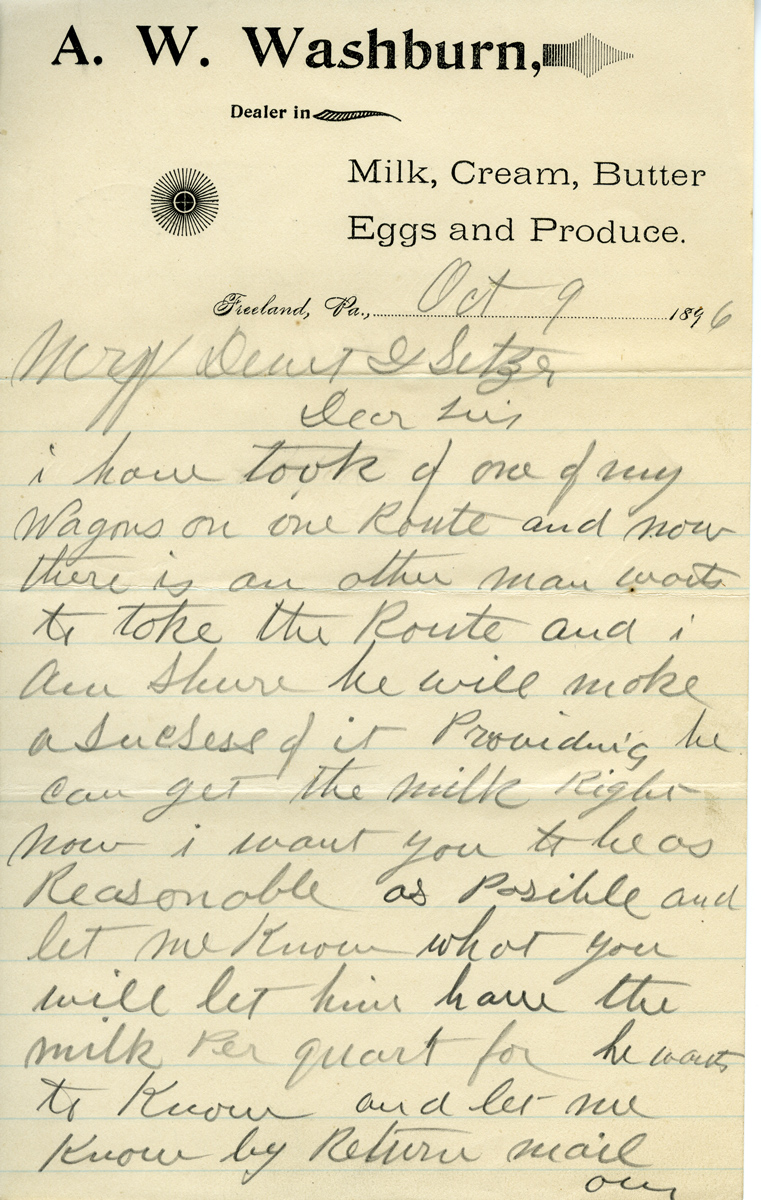 A. W. Washburn,
Dealer in
Milk, Cream, Butter
Eggs and Produce.
Freeland, Pa., Oct 9 1896
Setzer
Dear Sir
i have took of one of my
Wagons on one Route and now
there is an other man wants
to take the Route and i
Am Shure he will make
a Sucsess of it Providing he
can get the milk Right
now i want you to be as
Reasonable as Posible and
let me Know what you
will let him have the
milk Per quart for he wants
to Know and let me
Know by Return mail